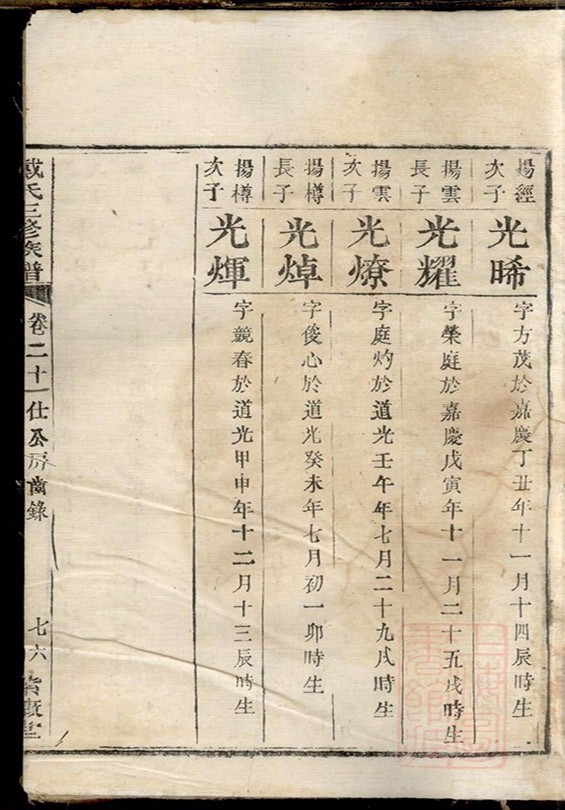 揚經次子
光晞
字方茂於嘉慶丁丑年十一月十四辰時生
揚雲長子
光耀
字榮庭於嘉慶戊寅年十一月二十五戌時生
揚雲次子
光燎
字庭灼於道光壬午年七月二十九戌時生
揚樽長子
光焯
字俊心於道光癸未年七月初一卯時生
揚樽次子
光煇
字競春於道光甲申年十二月十三辰時生
戴氏三修族譜
卷二十一仕公房齒錄
七六
紫 堂